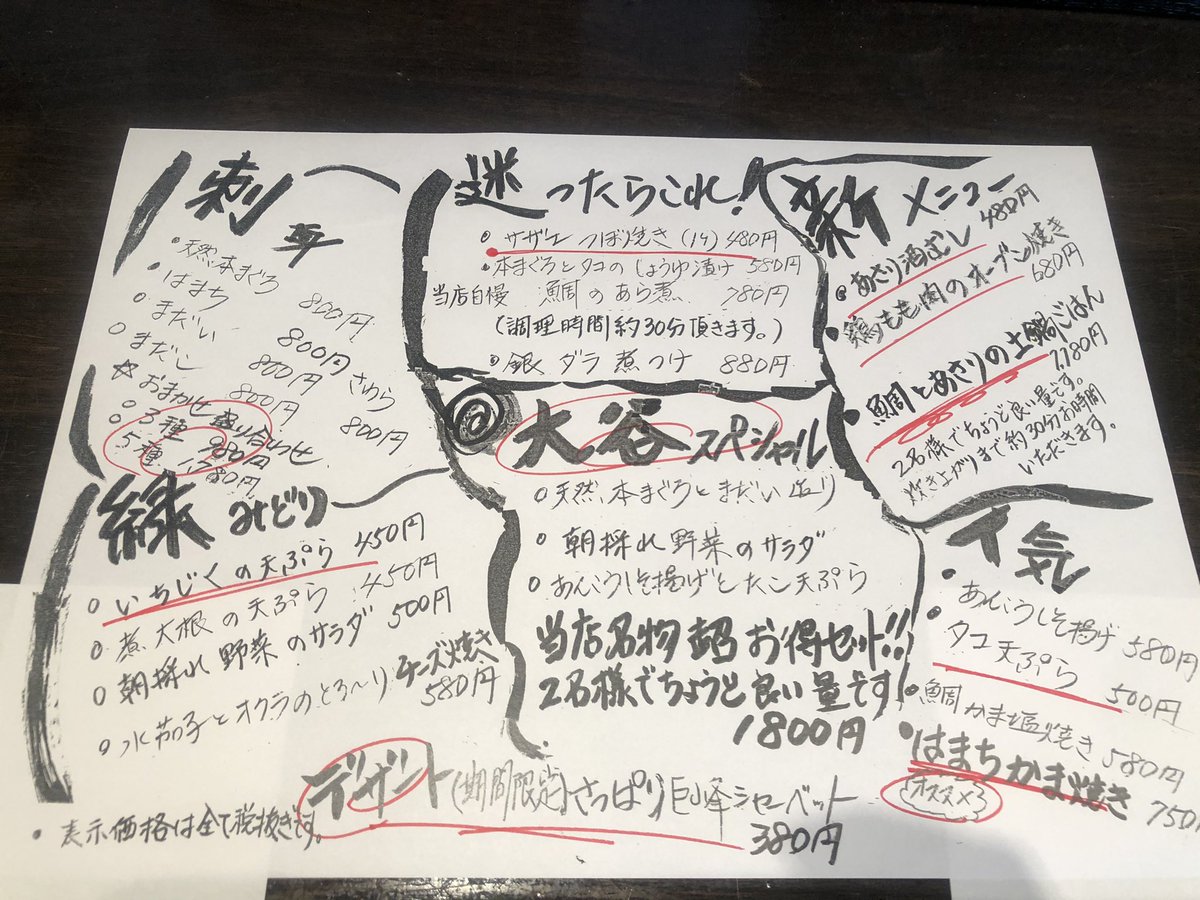 刺身
・天然本まぐろ 800円
・はまち 800円
○まだい 800円
○まだこ 800円
さわら 800円
☆おまかせ盛り合わせ
○3種 980円
○5種 1,780円
迷ったらこれ!
・サザエつぼ焼き(1ケ) 480円
・本まぐろとタコのしょうゆ漬け 580円
当店自慢 鯛のあら煮 780円
(調理時間約30分頂きます。)
・銀ダラ煮つけ 880円
新メニュー
・あさり酒むし 480円
・鶏もも肉のオーブン焼き 680円
・鯛とあさりの土鍋ごはん 1,780円
2名様でちょうど良い量です。
炊き上がりまで約30分お時間
いただきます。
緑 みどり
○いちじくの天ぷら 450円
○煮大根の天ぷら 450円
○朝採れ野菜のサラダ 500円
○水茄子とオクラのとろ〜りチーズ焼き 580円
大谷スペシャル
○天然本まぐろとまだい造り
・朝採れ野菜のサラダ
○あんこうしそ揚げとたこ天ぷら
当店名物超お得セット!!
2名様でちょうど良い量です
1800円
人気
・あんこうしそ揚げ 580円
・タコ天ぷら 500円
・鯛かま塩焼き 580円
・はまちかま焼き 750
オススメ
デザート(期間限定)さっぱり巨峰シャーベット
380円
・表示価格は全て税抜きです。